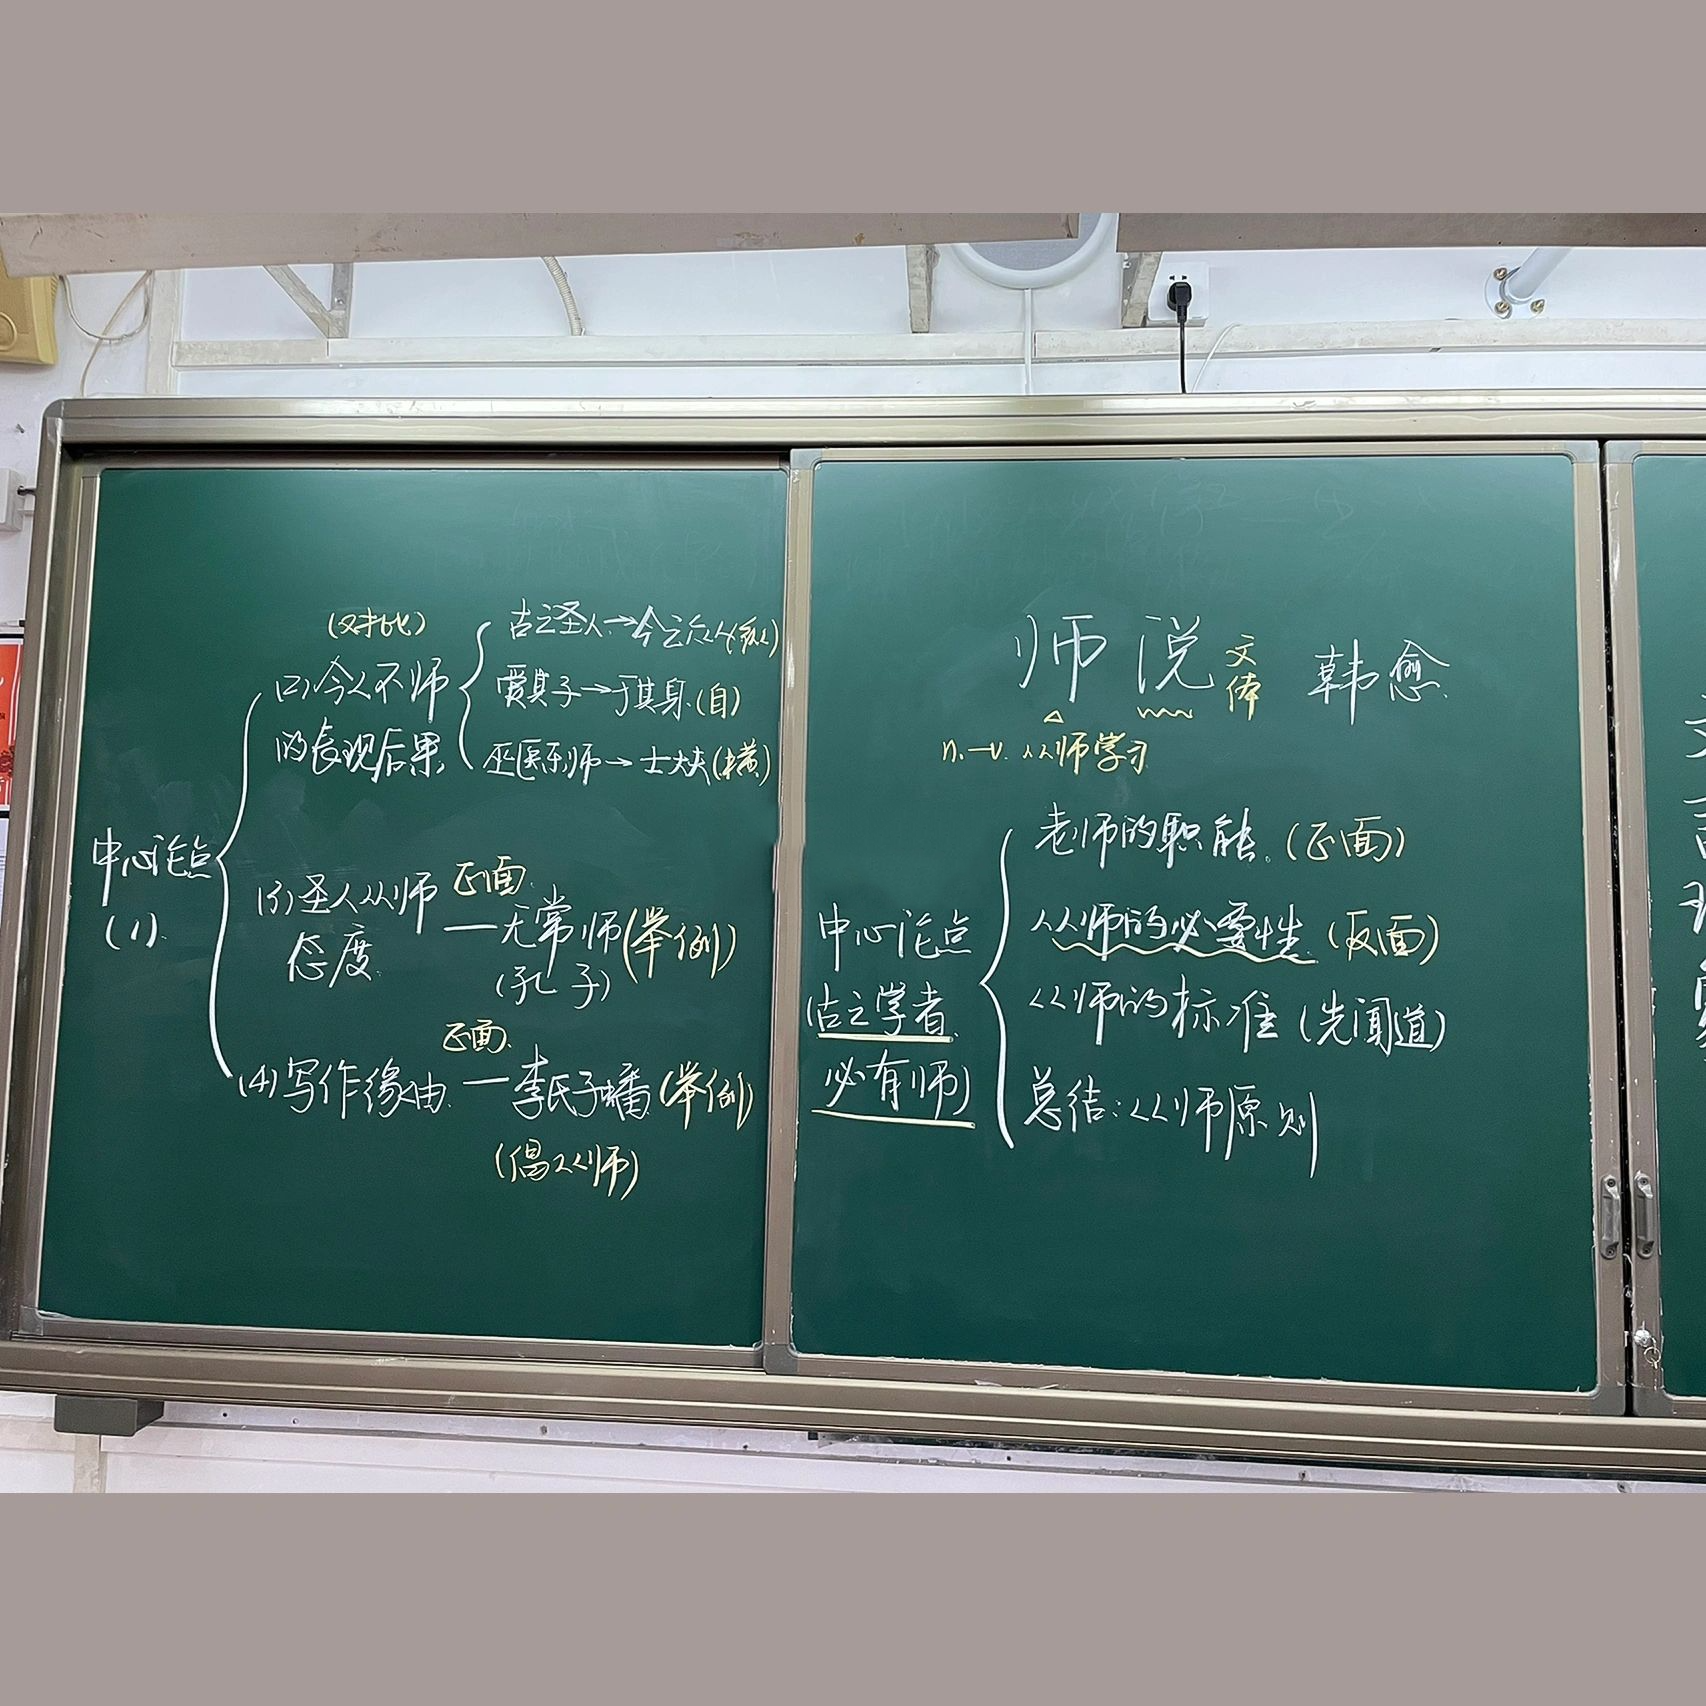 (对比)
(2)今人不师
的表现后果
古之圣人→今之众人(纵)
爱其子→于其身(自)
巫医乐师→士大夫(横)
中心论点
(1)
(3)圣人从师
态度
正面
—无常师(举例)
(孔子)
正面
(4)写作缘由
—李氏子蟠(举例)
(倡从师)
师说 文体 韩愈
n.→v. 从师学习
中心论点
(古之学者
必有师)
老师的职能(正面)
从师的必要性(反面)
从师的标准(先闻道)
总结:从师原则